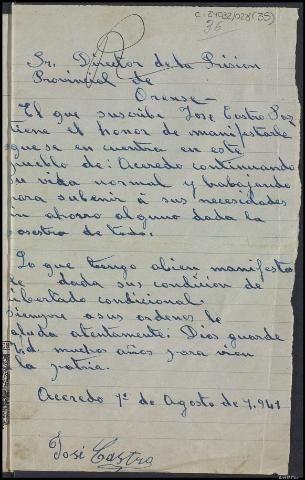 C-24032/028(35)
36
Sr. Director de la Prision
Provincial de
Orense-
El que suscribe Jose Castro
tiene el honor de manifestale
que se en cuentra en este
pueblo de: Aceredo continuando
su vida normal y trabajando
para subenir á sus necesidades
sin ahorro alguno dada la
de todo.
Lo que tengo abien manifesta
le dada sus condición de
libertado condicional.
Siempre a sus ordenes le
saluda atentamente: Dios guarde
Vd. muchos años para vien
la patria.
Aceredo 1º de Agosto de 1.941
José Castro